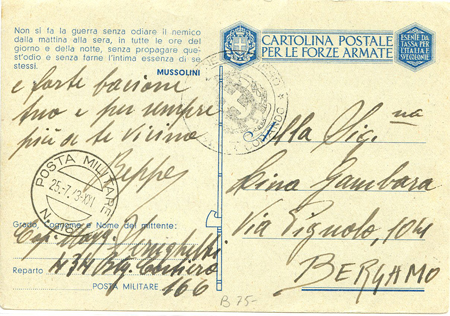 Non si fa la guerra senza odiare il nemico
dalla mattina alla sera, in tutte le ore del
giorno e della notte, senza propagare que-
st'odio e senza farne l'intima essenza di se
stessi.
MUSSOLINI
CARTOLINA POSTALE
PER LE FORZE ARMATE
ESENTE DA
TASSA PER
L'ITALIA
e forte bacione
tuo e per sempre
più di te vicino
Beppe
POSTA MILITARE
25.7.43
N.
Alla Sig.na
Lina Gambara
Via Pignolo, 104
BERGAMO
Grado, Cognome e Nome del mittente:
Cap. Magg.
Reparto 434 Btg. Costiero
POSTA MILITARE 166
B 75-